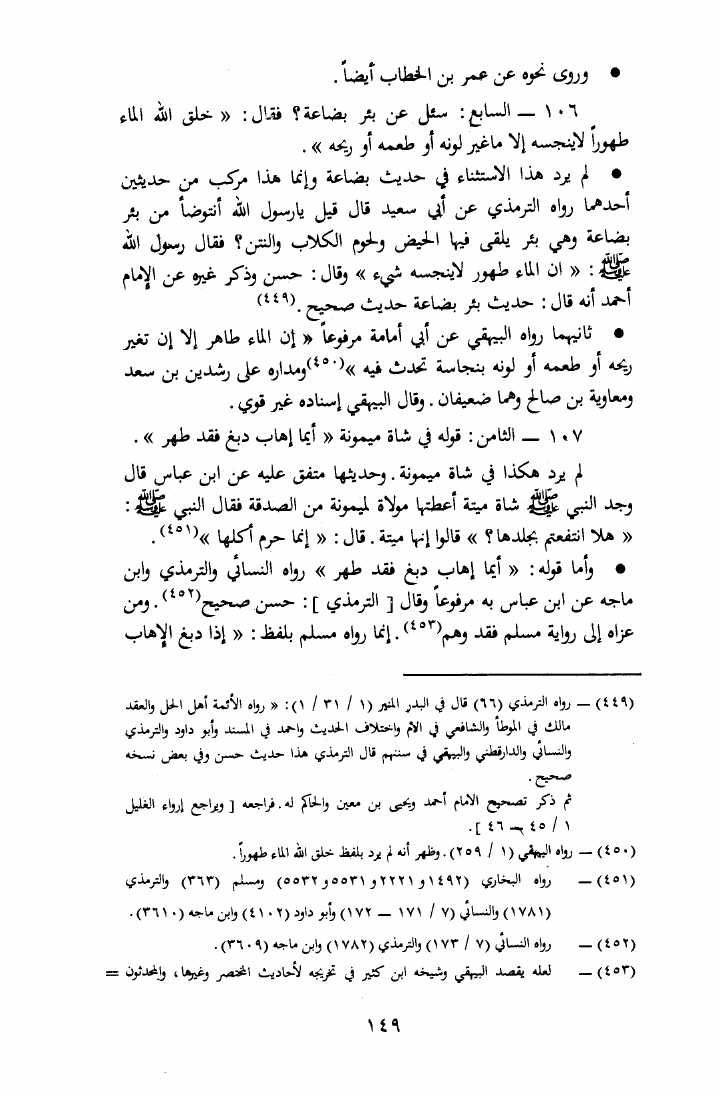 ● وروى نحوه عن عمر بن الخطاب أيضاً .
١٠٦ — السابع : سئل عن بئر بضاعة ؟ فقال : « خلق الله الماء
طهوراً لاينجسه إلا ماغير لونه أو طعمه أو ريحه » .
● لم يرد هذا الاستثناء في حديث بضاعة وإنما هذا مركب من حديثين
أحدهما رواه الترمذي عن أبي سعيد قال قيل يارسول الله أنتوضأ من بئر
بضاعة وهي بئر يلقى فيها الحيض ولحوم الكلاب والنتن ؟ فقال رسول الله
ﷺ : « ان الماء طهور لاينجسه شيء » وقال : حسن وذكر غيره عن الإمام
أحمد أنه قال : حديث بئر بضاعة حديث صحيح .(٤٤٩)
● ثانيهما رواه البيهقي عن أبي أمامة مرفوعاً « إن الماء طاهر إلا إن تغير
ريحه أو طعمه أو لونه بنجاسة تحدث فيه »(٤٥٠) ومداره على رشدين بن سعد
ومعاوية بن صالح وهما ضعيفان . وقال البيهقي إسناده غير قوي .
١٠٧ — الثامن : قوله في شاة ميمونة « أيما إهاب دبغ فقد طهر » .
لم يرد هكذا في شاة ميمونة . وحديثها متفق عليه عن ابن عباس قال
وجد النبي ﷺ شاة ميتة أعطتها مولاة لميمونة من الصدقة فقال النبي ﷺ :
« هلا انتفعتم بجلدها ؟ » قالوا إنها ميتة . قال : « إنما حرم أكلها »(٤٥١) .
● وأما قوله : « أيما إهاب دبغ فقد طهر » رواه النسائي والترمذي وابن
ماجه عن ابن عباس به مرفوعاً وقال [ الترمذي ] : حسن صحيح(٤٥٢) . ومن
عزاه إلى رواية مسلم فقد وهم(٤٥٣) . إنما رواه مسلم بلفظ : « إذا دبغ الإهاب
(٤٤٩) — رواه الترمذي (٦٦) قال في البدر المنير (١ / ٣١ / ١) : « رواه الأئمة أهل الحل والعقد
مالك في الموطأ والشافعي في الأم واختلاف الحديث واحمد في المسند وأبو داود والترمذي
والنسائي والدارقطني والبيهقي في سننهم قال الترمذي هذا حديث حسن وفي بعض نسخه
صحيح .
ثم ذكر تصحيح الامام أحمد ويحيى بن معين والحاكم له . فراجعه [ ويراجع إرواء الغليل
١ / ٤٥ — ٤٦ ] .
(٤٥٠) — رواه البيهقي (١ / ٢٥٩) . وظهر أنه لم يرد بلفظ خلق الله الماء طهوراً .
(٤٥١) — رواه البخاري (١٤٩٢ و ٢٢٢١ و ٥٥٣١ و ٥٥٣٢) ومسلم (٣٦٣) والترمذي
(١٧٨١) والنسائي (٧ / ١٧١ — ١٧٢) وأبو داود (٤١٠٢) وابن ماجه (٣٦١٠) .
(٤٥٢) — رواه النسائي (٧ / ١٧٣) والترمذي (١٧٨٢) وابن ماجه (٣٦٠٩) .
(٤٥٣) — لعله يقصد البيهقي وشيخه ابن كثير في تخريجه لأحاديث المختصر وغيرها ، والمحدثون =
١٤٩